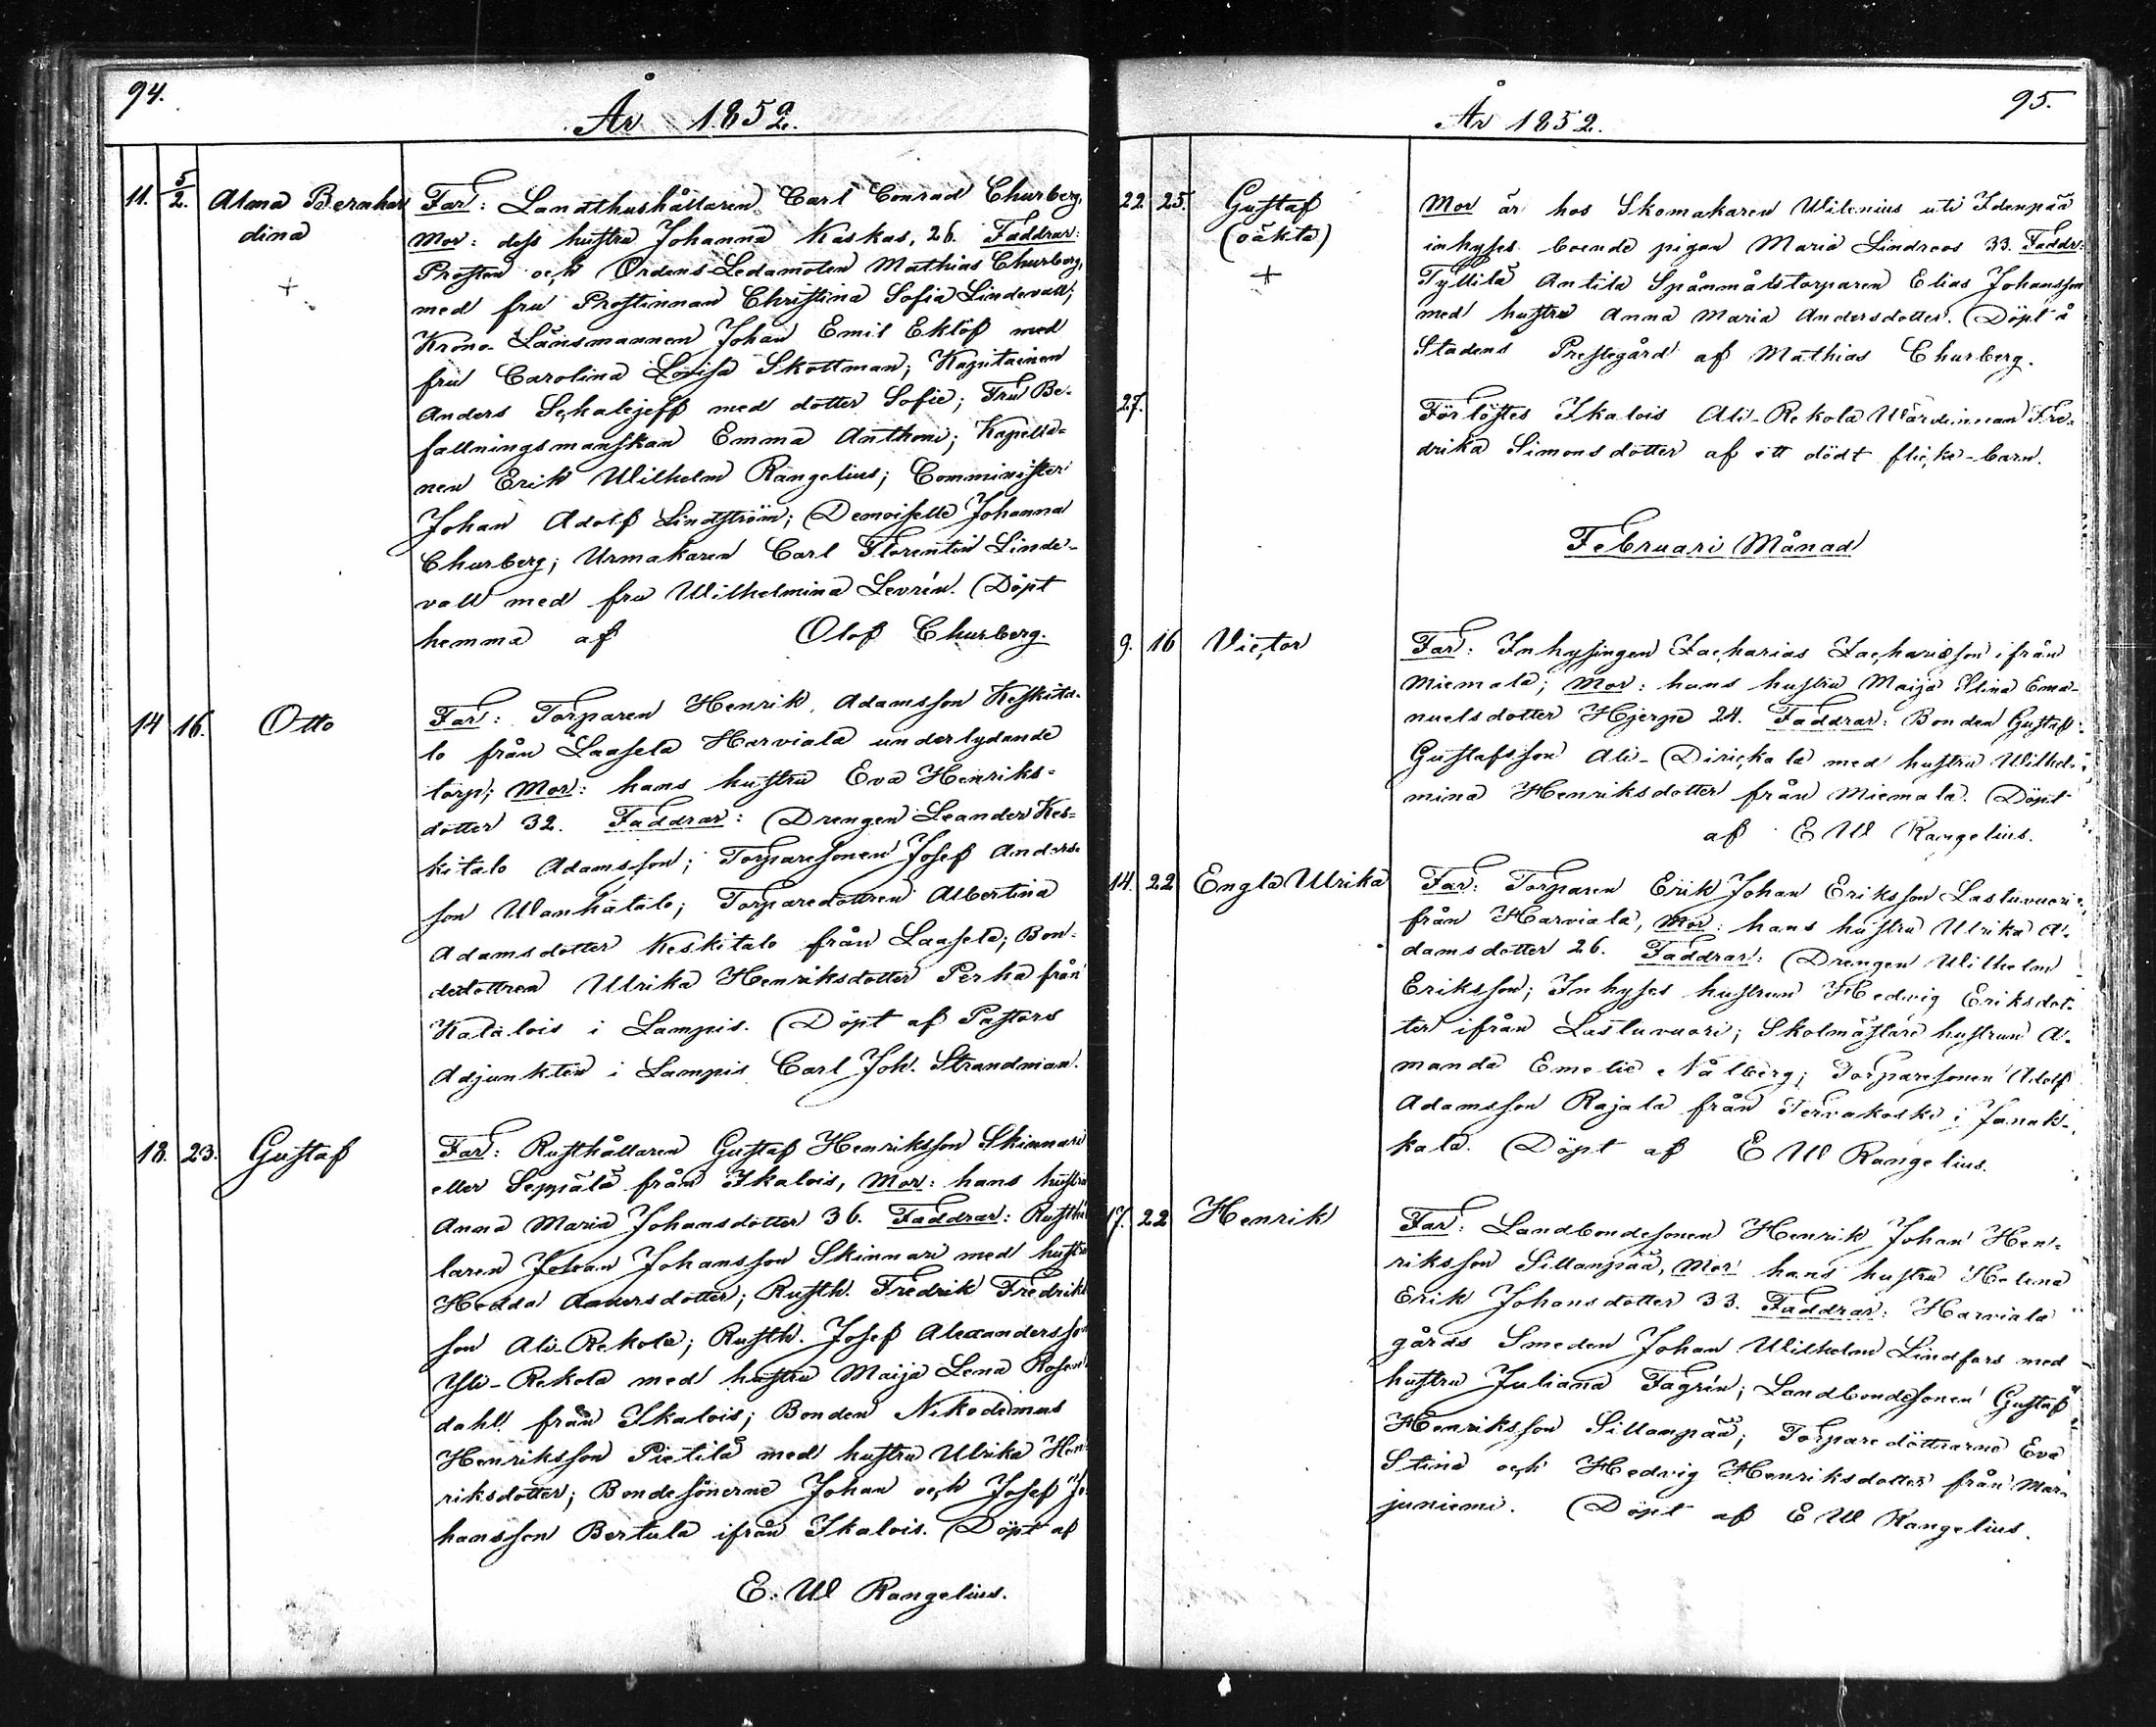 94.
År 1852.
11. 5/2. Alma Bernhar
dina
+
Far: Landthushållaren Carl Conrad Churberg,
Mor: dess hustru Johanna Kaskas, 26. Faddrar:
Prosten och Ordens-Ledamoten Mathias Churberg,
med fru Prostinnan Christina Sofia Lindevall;
Krono-Länsmannen Johan Emil Eklöf med
fru Carolina Lovisa Skottman; Kapitainen
Anders Schalejeff med dotter Sofie; Fru Be-
fallningsmanskan Emma Anthoni; Kapella-
nen Erik Wilhelm Rangelius; Comminister
Johan Adolf Lindström; Demoiselle Johanna
Churberg; Urmakaren Carl Florentin Linde-
vall med fru Wilhelmina Levrén. Döpt
hemma af Olof Churberg.
14 16. Otto
Far: Torparen Henrik Adamsson Keskita-
lo från Laasela Harviala underlydande
torp; Mor: hans hustru Eva Henriks-
dotter 32. Faddrar: Drengen Leander Kes-
kitalo Adamsson; Torparesonen Josef Anders-
son Wanhatalo; Torparedottren Albertina
Adamsdotter Keskitalo från Laasela; Bon-
dedottren Ulrika Henriksdotter Perha från
Katalois i Lampis. Döpt af Pastors
Adjunkten i Lampis Carl Joh. Strandman.
18. 23. Gustaf
Far: Rusthållaren Gustaf Henriksson Skinnari
eller Seppälä från Ikalois, Mor: hans hustru
Anna Maria Johansdotter 36. Faddrar: Rusthål
laren Johan Johansson Skinnari med hustru
Hedda Andersdotter; Rusth. Fredrik Fredriks
son Ali-Rekola; Rusth. Josef Alexandersson
Yli-Rekola med hustru Maija Lena Rosen
dahl från Ikalois; Bonden Nikodemus
Henriksson Pietilä med hustru Ulrika Hen-
riksdotter; Bondesönerne Johan och Josef Jo-
hansson Bertula ifrån Ikalois. Döpt af
E. W Rangelius.
95.
År 1852.
22. 25. Gustaf
(oäkta)
+
Mor är hos Skomakaren Wilenius uti Idenpää
inhyses boende pigan Maria Lindroos 33. Faddr:
Tyllilä Antila Spånmålstorparen Elias Johansson
med hustru Anna Maria Andersdotter. Döpt å
Stadens Prestegård af Mathias Churberg.
27.
Förlöstes Ikalois Ali-Rekola Wärdinnan Fre-
drika Simonsdotter af ett dödt flicke-barn.
Februari Månad
9. 16 Victor
Far: Inhysingen Zacharias Zachariæson ifrån
Miemala; Mor: hans hustru Maija Stina Ema-
nuelsdotter Hjerpe 24. Faddrar: Bonden Gustaf
Gustafsson Ali-Dirickala med hustru Wilhel-
mina Henriksdotter från Miemala. Döpt
af E W Rangelius.
14. 22 Engla Ulrika
Far: Torparen Erik Johan Eriksson Lastuvuori
från Harviala, Mor: hans hustru Ulrika A-
damsdotter 26. Faddrar: Drengen Wilhelm
Eriksson; Inhyses hustrun Hedvig Eriksdot-
ter ifrån Lastuvuori; Skolmästare hustrun A-
manda Emelie Nålberg; Torparesonen Adolf
Adamsson Rajala från Tervakoski i Janak-
kala. Döpt af E W Rangelius.
17. 22 Henrik
Far: Landbondesonen Henrik Johan Hen-
riksson Sillanpää, Mor hans hustru Helena
Erik Johansdotter 33. Faddrar: Harviala
gårds Smeden Johan Wilhelm Lindfors med
hustru Juliana Fagrén; Landbondesonen Gustaf
Henriksson Sillanpää; Torparedöttrarne Eva
Stina och Hedvig Henriksdotter från Mar-
juniemi. Döpt af E W Rangelius.